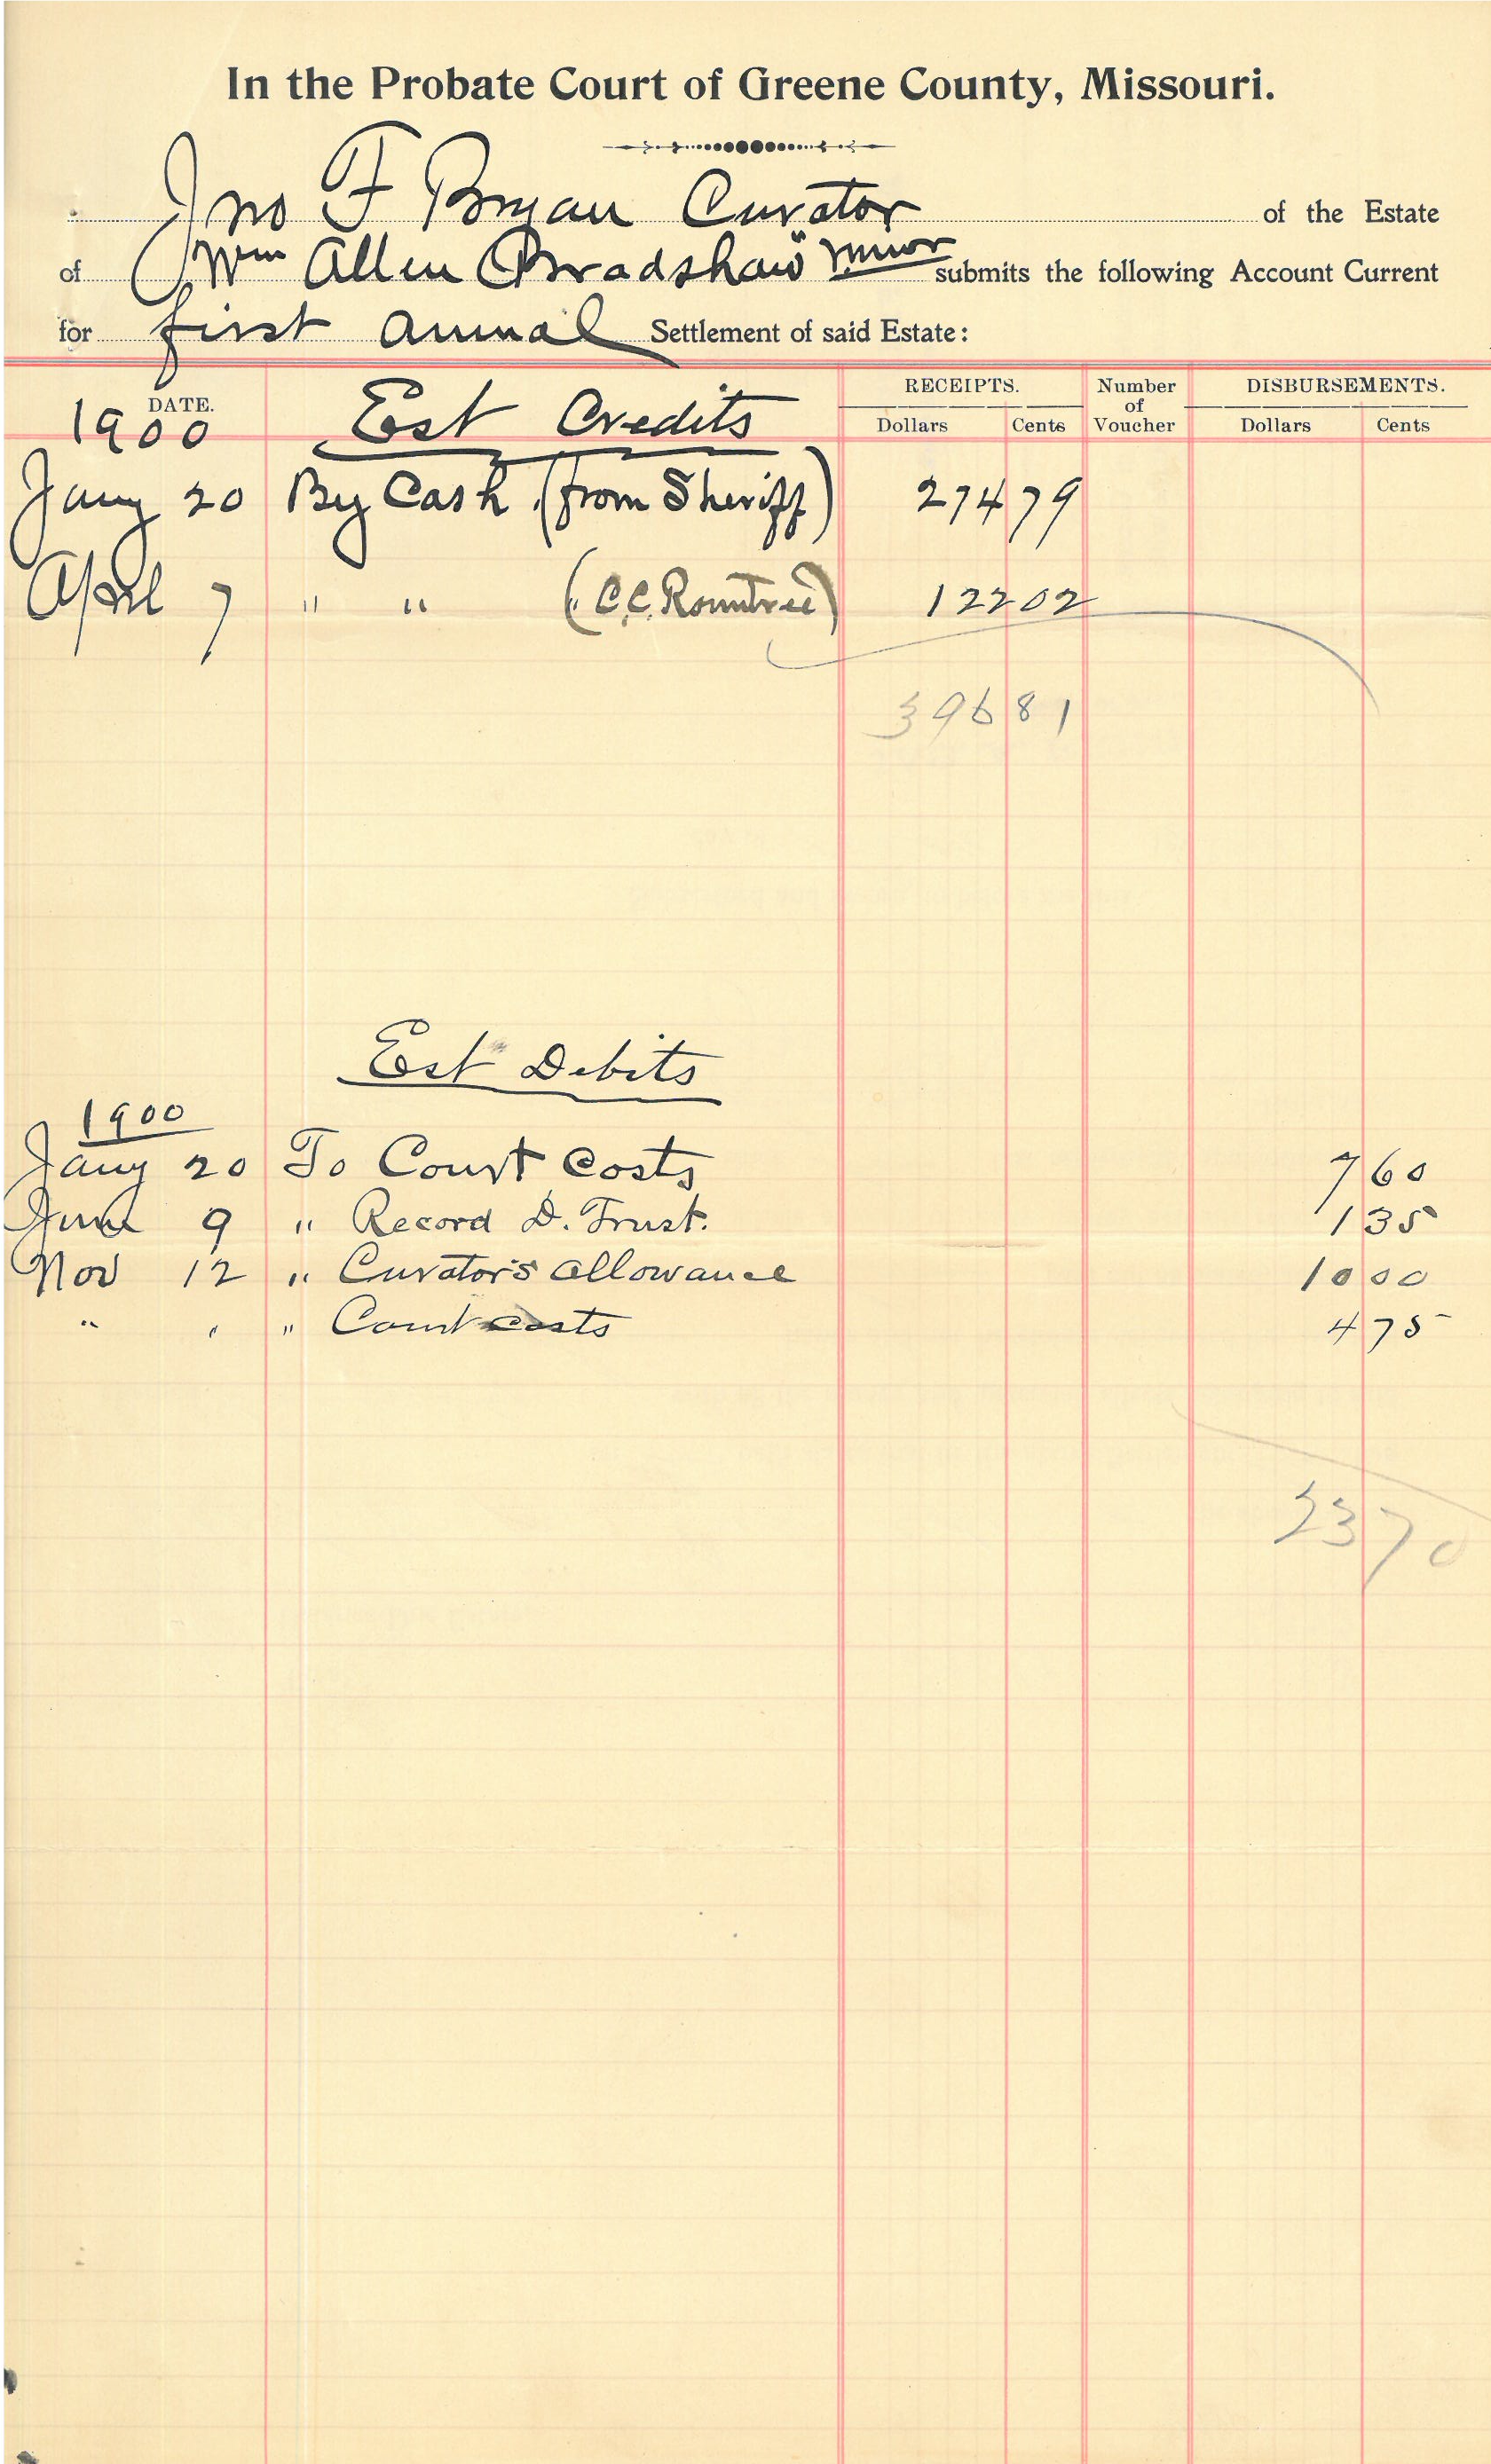 In the Probate Court of Greene County, Missouri.
Jno F Bryan Curator of the Estate
of Wm Allen Bradshaw minor submits the following Account Current
for first annual Settlement of said Estate:
DATE. RECEIPTS. Number of Voucher DISBURSEMENTS.
Dollars Cents Dollars Cents
1900 Est Credits
Jany 20 By Cash (from Sheriff) 274 79
April 7 " " (C.C. Rountree) 122 02
396 81
Est Debits
1900
Jany 20 To Court Costs 7 60
June 9 " Record D. Trust. 1 35
Nov 12 " Curator's allowance 10 00
" " " Court costs 4 75
23 70